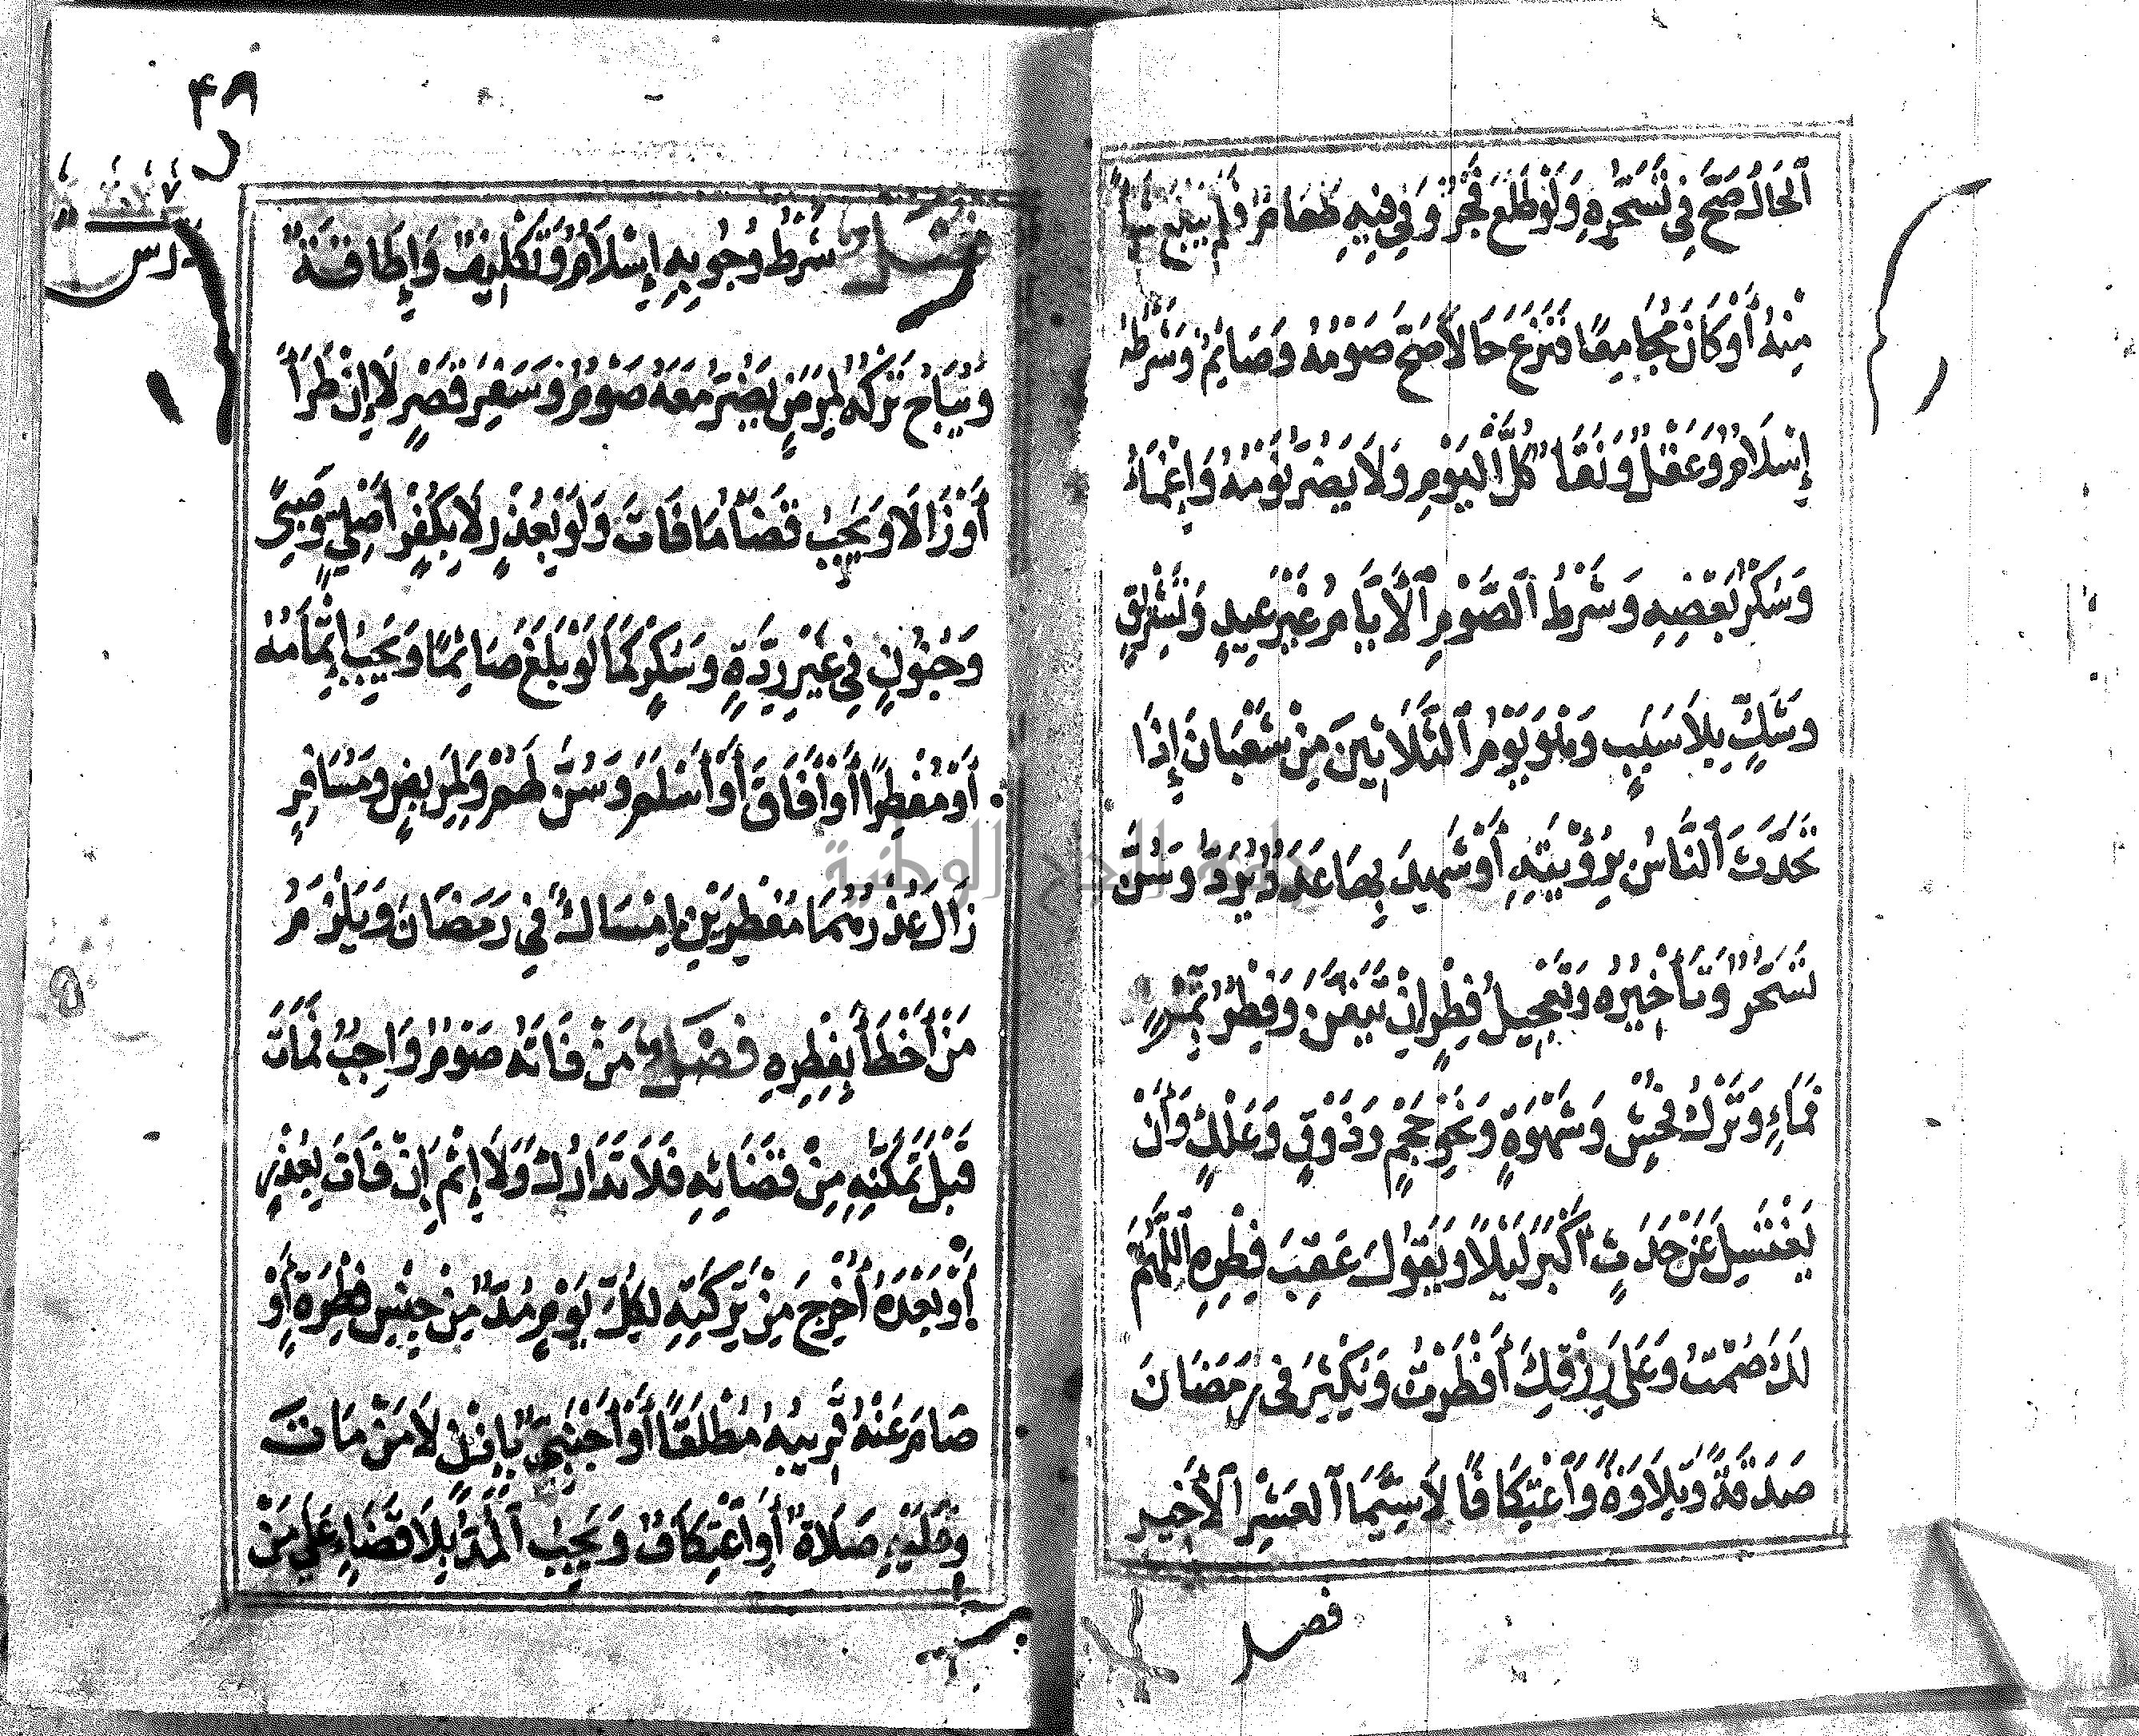 ٱلْحَالُ صَحَّ فِي تَسَحُّرِهِ وَلَوْ طَلَعَ فَجْرٌ وَفِي فِيهِ طَعَامٌ فَلَمْ يَبْلَعْ شَيْأً
مِنْهُ أَوْ كَانَ مُجَامِعًا فَنَزَعَ حَالًا صَحَّ صَوْمُهُ وَصَائِمٌ وَشَرْطُهُ
إِسْلَامٌ وَعَقْلٌ وَنَقَاءٌ كُلَّ الْيَوْمِ وَلَا يَضُرُّ نَوْمُهُ وَإِغْمَاءُ
وَسُكْرُ بَعْضِهِ وَشَرْطُ ٱلصَّوْمِ ٱلْأَيَّامُ غَيْرَ عِيدٍ وَتَشْرِيقٍ
وَشَكٍّ بِلَا سَبَبٍ وَهُوَ يَوْمُ ٱلثَّلَاثِينَ مِنْ شَعْبَانَ إِذَا
تَحَدَّثَ ٱلنَّاسُ بِرُؤْيَتِهِ أَوْ شَهِدَ بِهَا عَدَدٌ يُرَدُّ وَسُنَّ
تَسَحُّرٌ وَتَأْخِيرُهُ وَتَعْجِيلُ فِطْرٍ إِنْ تَيَقَّنَ وَفِطْرٌ بِتَمْرٍ
فَمَاءٍ وَتَرْكُ فُحْشٍ وَشَهْوَةٍ وَنَحْوِ حَجْمٍ وَذَوْقٍ وَعَلْكٍ وَأَنْ
يَغْتَسِلَ عَنْ حَدَثٍ أَكْبَرَ لَيْلًا وَيَقُولَ عَقِبَ فِطْرِهِ ٱللَّهُمَّ
لَكَ صُمْتُ وَعَلَى رِزْقِكَ أَفْطَرْتُ وَيُكْثِرَ فِي رَمَضَانَ
صَدَقَةً وَتِلَاوَةً وَٱعْتِكَافًا لَا سِيَّمَا ٱلعَشْرِ ٱلْأَخِيرِ
فصل
٤٨
درس
فَصْلٌ شَرْطُ وُجُوبِهِ إِسْلَامٌ وَتَكْلِيفٌ وَإِطَاقَةٌ
وَيُبَاحُ تَرْكُهُ لِمَرَضٍ يَضُرُّ مَعَهُ صَوْمٌ وَسَفَرِ قَصْرٍ لَا إِنْ طَرَأَ
أَوْ زَالَا وَيَجِبُ قَضَاءُ مَا فَاتَ وَلَوْ بِعُذْرٍ لَا بِكُفْرٍ أَصْلِيٍّ وَصِبًى
وَجُنُونٍ فِي غَيْرِ رِدَّةٍ وَسُكْرٍ كَمَا لَوْ بَلَغَ صَائِمًا وَيَجِبُ إِتْمَامُهُ
أَوْ مُفْطِرًا أَوْ أَفَاقَ أَوْ أَسْلَمَ وَسُنَّ لَهُمْ وَلِمَرِيضٍ وَمُسَافِرٍ
زَالَ عُذْرُهُمَا مُفْطِرَيْنِ إِمْسَاكٌ فِي رَمَضَانَ وَيَلْزَمُ
مَنْ أَخْطَأَ بِفِطْرِهِ فَصْلٌ مَنْ فَاتَهُ صَوْمٌ وَاجِبٌ فَمَاتَ
قَبْلَ تَمَكُّنِهِ مِنْ قَضَائِهِ فَلَا تَدَارُكَ وَلَا إِثْمَ إِنْ فَاتَ بِعُذْرٍ
أَوْ بَعْدَهُ أُخْرِجَ مِنْ تَرِكَتِهِ لِكُلِّ يَوْمٍ مُدٌّ مِنْ جِنْسِ فِطْرَةٍ أَوْ
صَامَ عَنْهُ قَرِيبُهُ مُطْلَقًا أَوْ أَجْنَبِيٌّ بِإِذْنٍ لَا مَنْ مَاتَ
وَعَلَيْهِ صَلَاةٌ أَوِ اعْتِكَافٌ وَيَجِبُ ٱلْمُدُّ بِلَا قَضَاءٍ عَلَى مَنْ
جامعة النجاح الوطنية